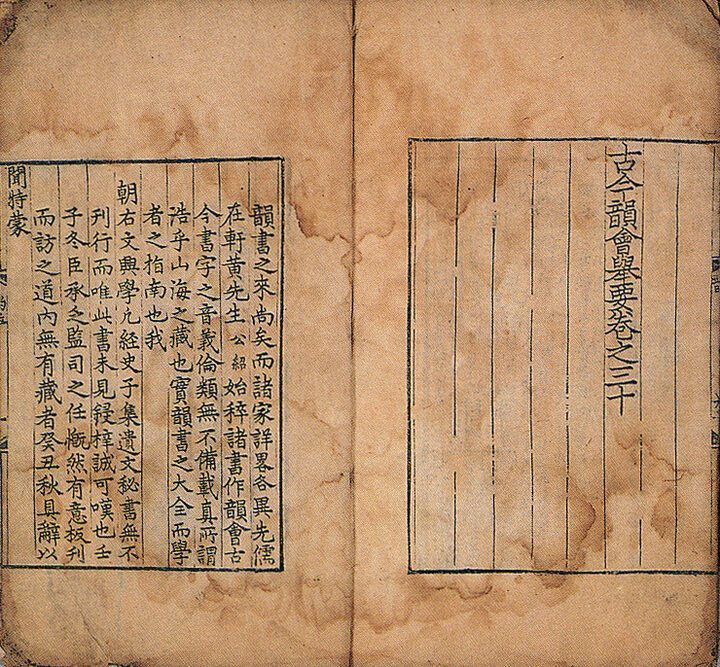 古今韻會舉要卷之三十
韻書之來尚矣而諸家詳畧各異先儒
在軒黄先生公紹始稡諸書作韻會古
今書字之音義倫類無不備載真所謂
浩乎山海之藏也寳韻書之大全而學
者之指南也我
朝右文興學凡経史子集遺文秘書無不
刋行而唯此書未見鋟梓誠可嘆也壬
子冬臣承乏監司之任慨然有意板刋
而訪之道內無有藏者癸丑秋具辭以
聞特蒙